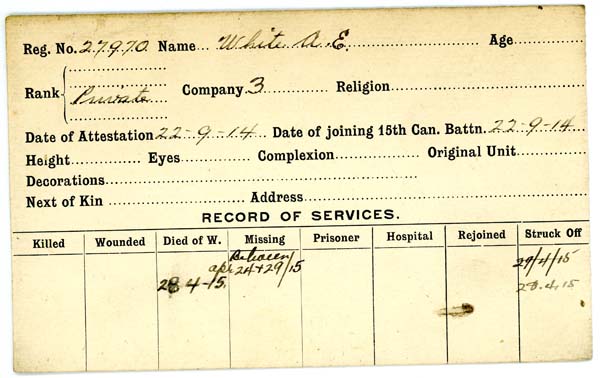 Reg. No. 27970 Name White A. E. Age
Rank Private Company 3 Religion
Date of Attestation 22-9-14 Date of joining 15th Can. Battn. 22-9-14
Height Eyes Complexion Original Unit
Decorations
Next of Kin Address
RECORD OF SERVICES.
Killed Wounded Died of W. Missing Prisoner Hospital Rejoined Struck Off
Between
Apr 24+29/15 29/4/15
28 4-15. 28.4.15